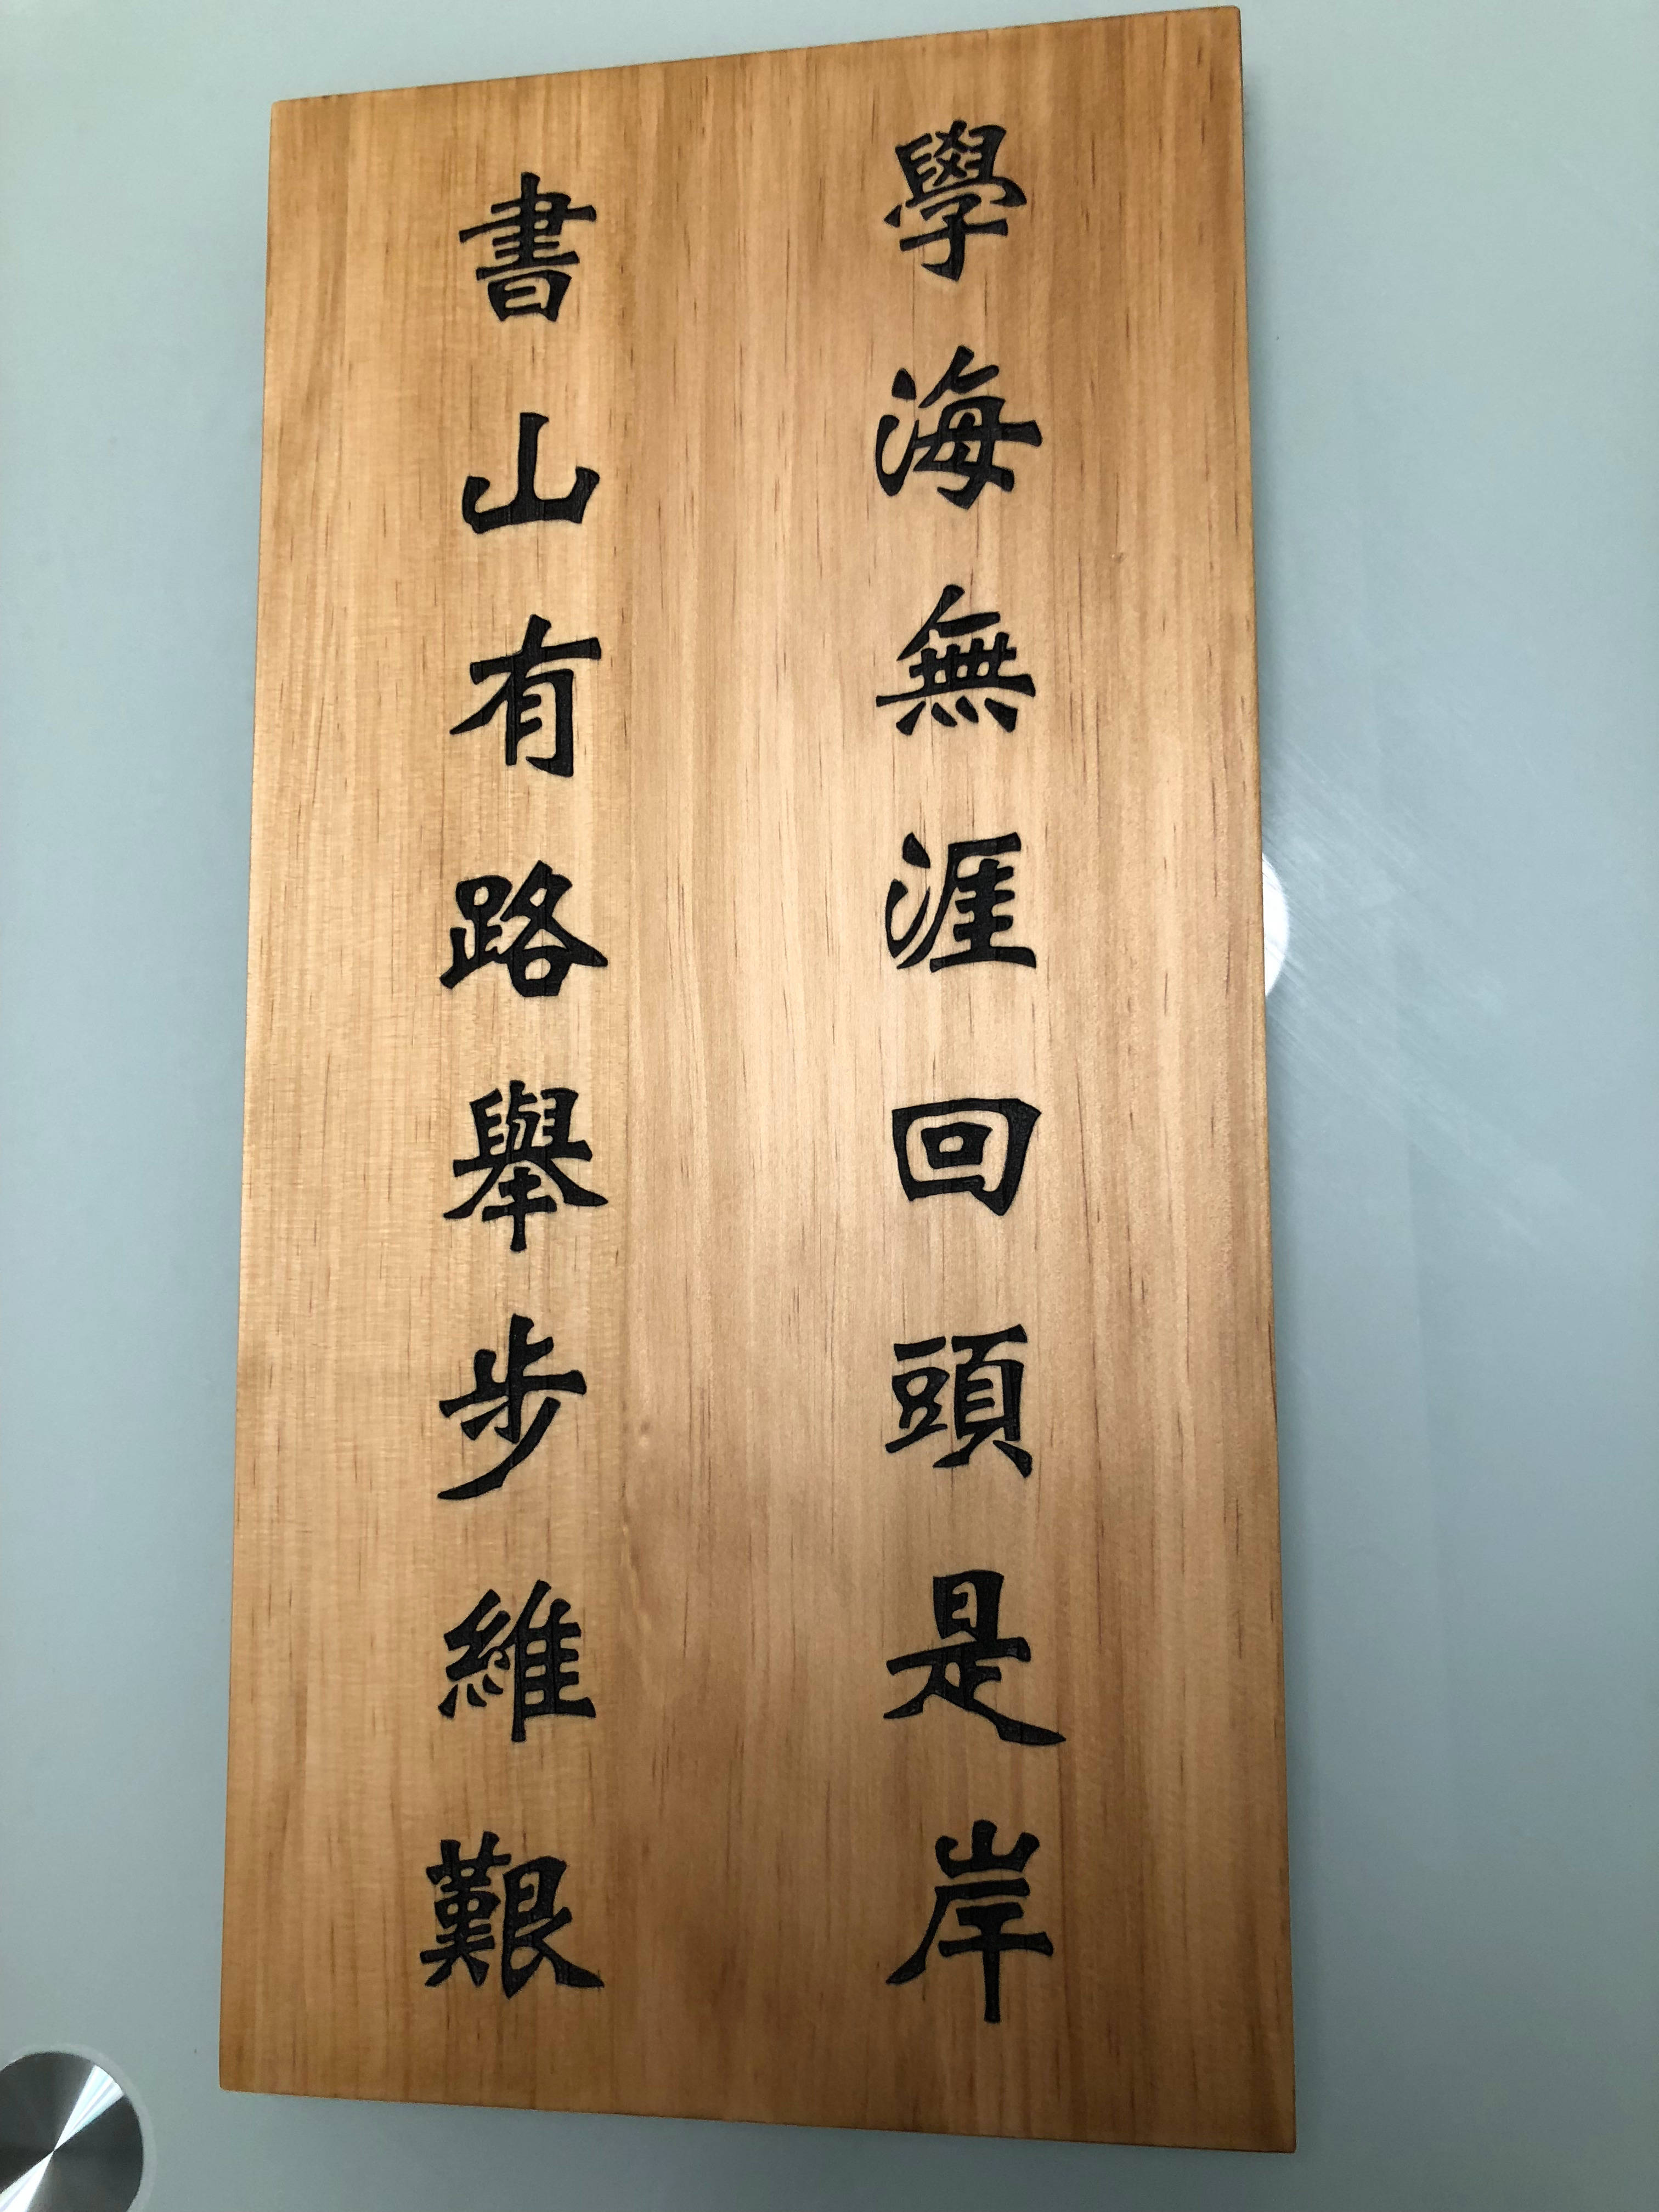 學海無涯回頭是岸
書山有路舉步維艱